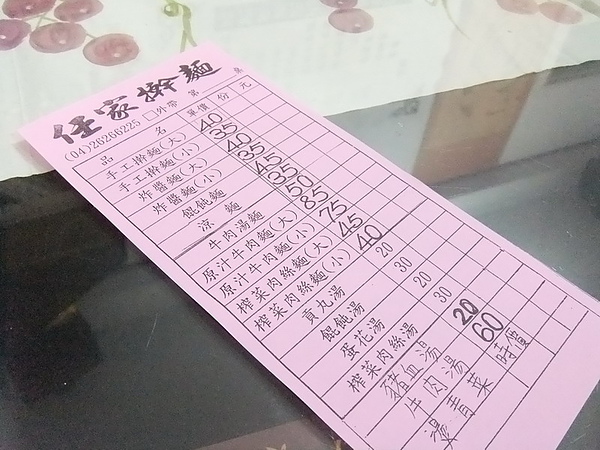 任家擀麵
(04)26266225 □外帶 第 桌
品 名 單價 份 元
手工擀麵(大) 40
手工擀麵(小) 35
炸醬麵(大) 40
炸醬麵(小) 35
餛飩麵 45
涼 麵 35
牛肉湯麵 50
原汁牛肉麵(大) 85
原汁牛肉麵(小) 75
榨菜肉絲麵(大) 45
榨菜肉絲麵(小) 40
貢丸湯 20
餛飩湯 30
蛋花湯 20
榨菜肉絲湯 30
豬血湯 20
牛肉湯 60
燙青菜 時價